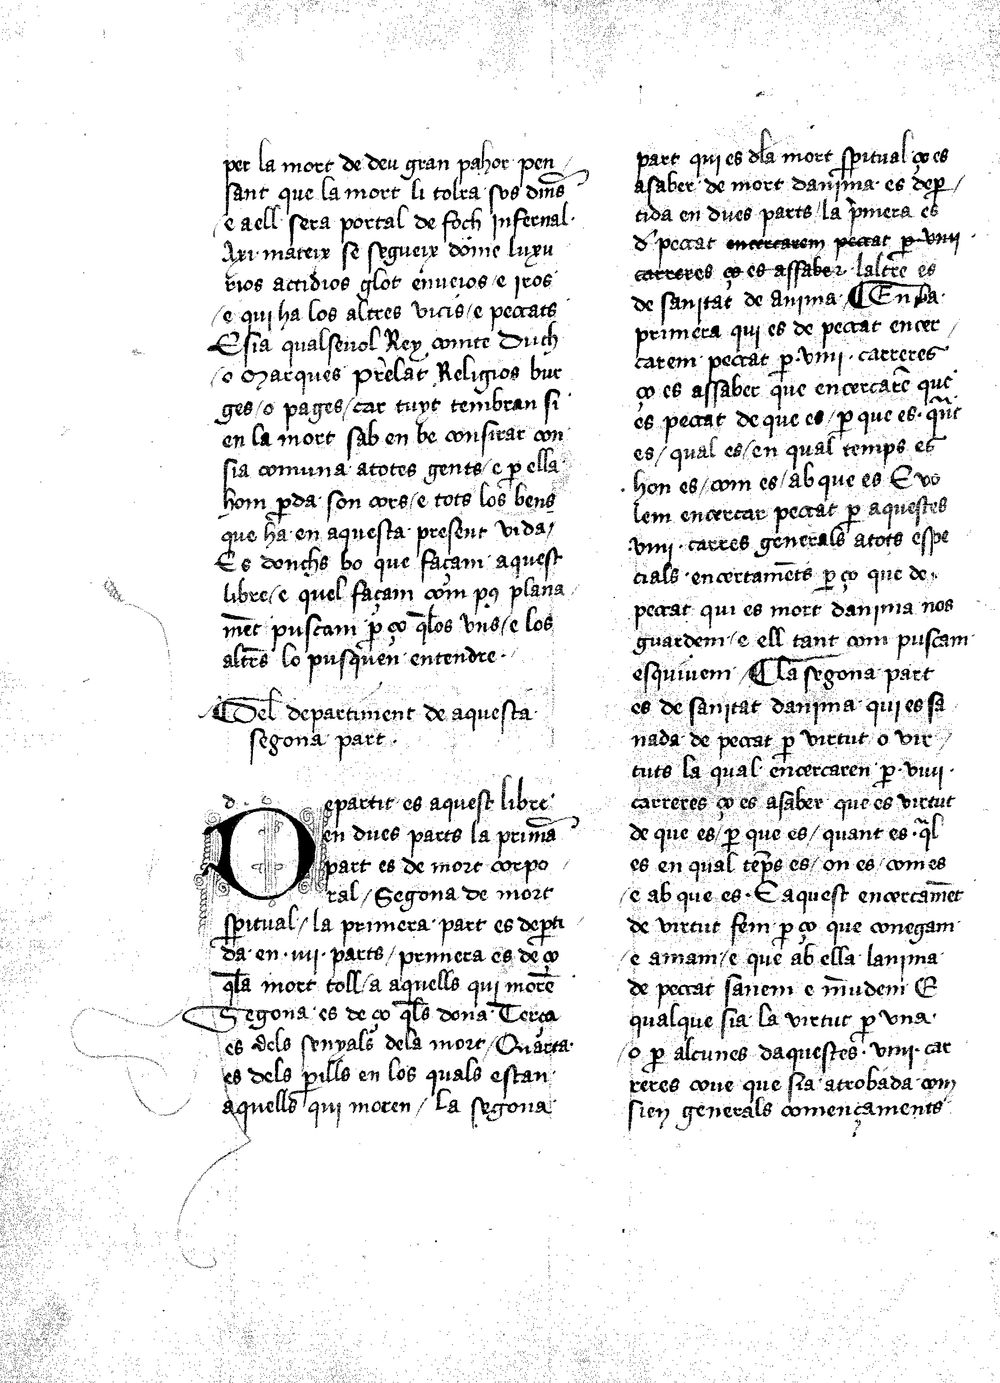 per la mort de deu gran pahor pen /
sant que la mort li tolra sos dins̄
/ e aell sera portal de foch infernal·
Axi mateix se segueix dome luxu
rios accidios glot enveios / e iros
/ e qui ha los altres vicis / e peccats
E sia qualsevol Rey comte Duch
/ o Marques prelat Religios bur
ges / o pages / car tuyt tembran si
en la mort sab en be consirar con
sia comuna atotes gents / e p̱ ella
hom p̱da son cors / e tots los bens
que ha en aquesta present vida /
Es donchs bo que façam aquest
libre / e quel façam com pus plana
mēt puscam p̱ ço q̄los uns / e los
altres lo pusquen entendre·
¶ Del departiment de aquesta
segona part·
d
Departit es aquest libre
en dues parts la prima
part es de mort corpo /
ral / Segona de mort
sp̄itual / la primera part es dep̱ti
da en ·iiii· parts / primera es de ço
q̄la mort toll / a aquells qui morē
Segona es de ço q̄ls dona Terça
es dels senyals dela mort / Quarta
es dels p̱ills en los quals estan
aquells qui moren / la segona
part qui es dla mort sp̄itual ço es
asaber de mort danjma es dep̱ /
tida en dues parts / la p̄mera es
d peccat encercarem peccat p̱ viiii
carreres ço es assaber laltre es
de sanitat de anima ¶ En la
primera qui es de peccat encer /
carem peccat p̱ ·viiii· carreres
ço es assaber que encercarē que
es peccat de que es / p̱ que es· qūt
es / qual es / en qual temps es
hon es / com es / ab que es E vo
lem encercar peccat p̱ aquestes
viiii· carres generals atots espe
cials encertamēts p̱ ço que de
peccat qui es mort danjma nos
guardem / e ell tant com puscam
esquivem ¶ La segona part
es de sanitat danjma qui es sa
nada de peccat p̱ virtut o vir /
tuts la qual encercaren p̱ ·viiii·
carreres ço es asaber que es virtut
de que es / p̱ que es / quant es· q̄l
es en qual tēps es / on es / com es
/ e ab que es· E aquest encertamēt
de virtut fem p̱ ço que conegam
/ e amam / e que ab ella lanjma
de peccat sanem e mūdem E
qualque sia la virtut p̱ vna
/ o p̱ alcunes daquestes viiii· car
reres cove que sia atrobada com
sien generals començaments